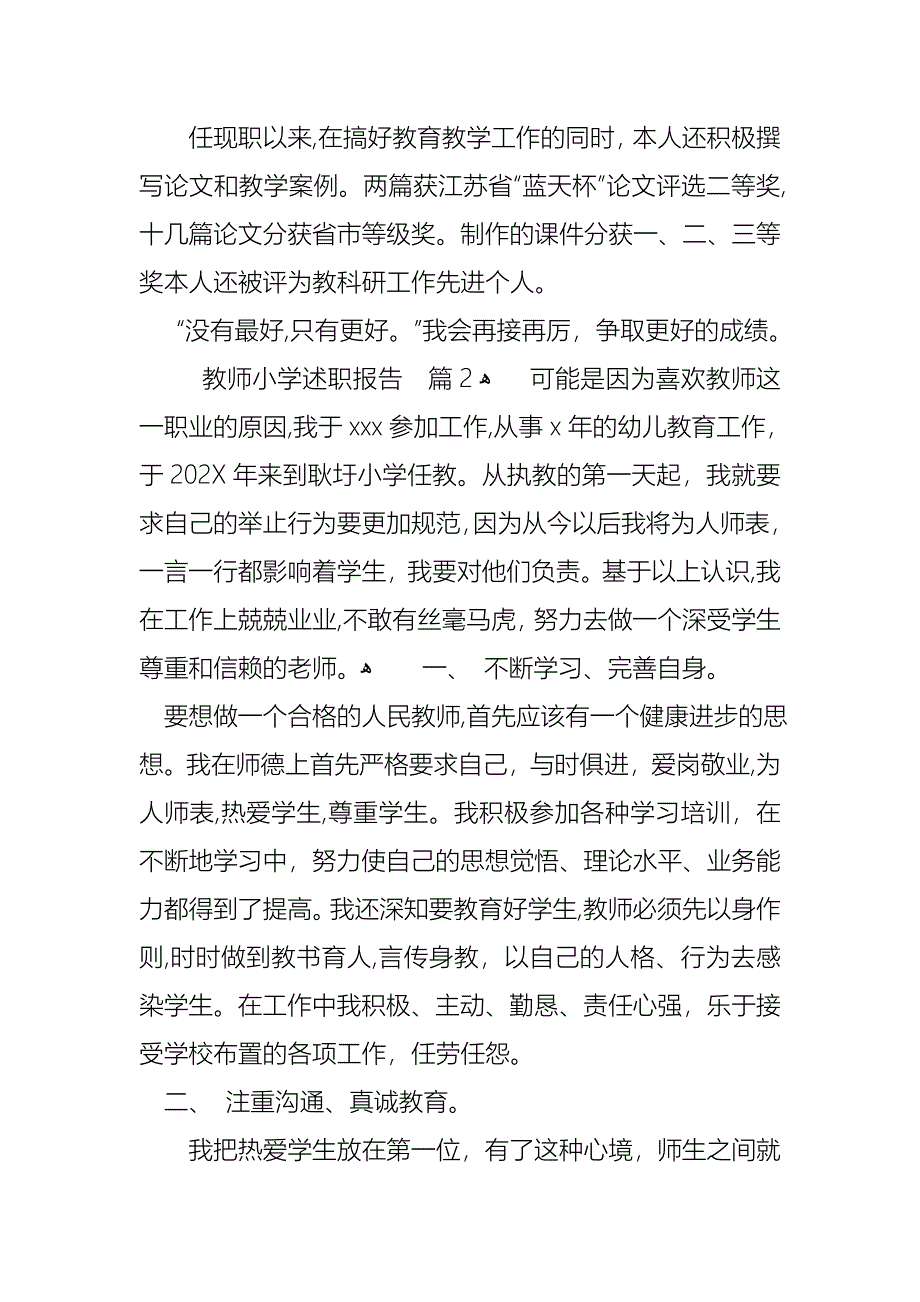 任现职以来,在搞好教育教学工作的同时，本人还积极撰
写论文和教学案例。两篇获江苏省“蓝天杯”论文评选二等奖,
十几篇论文分获省市等级奖。制作的课件分获一、二、三等
奖本人还被评为教科研工作先进个人。
“没有最好,只有更好。”我会再接再厉，争取更好的成绩。
教师小学述职报告　篇2ﻫ　　可能是因为喜欢教师这
一职业的原因,我于 xxx 参加工作,从事 x 年的幼儿教育工作，
于 202X 年来到耿圩小学任教。从执教的第一天起，我就要
求自己的举止行为要更加规范,因为从今以后我将为人师表，
一言一行都影响着学生，我要对他们负责。基于以上认识,我
在工作上兢兢业业,不敢有丝毫马虎，努力去做一个深受学生
尊重和信赖的老师。ﻫ　　一、 不断学习、完善自身。
要想做一个合格的人民教师,首先应该有一个健康进步的思
想。我在师德上首先严格要求自己，与时俱进，爱岗敬业,为
人师表,热爱学生,尊重学生。我积极参加各种学习培训，在
不断地学习中，努力使自己的思想觉悟、理论水平、业务能
力都得到了提高。我还深知要教育好学生,教师必须先以身作
则,时时做到教书育人,言传身教，以自己的人格、行为去感
染学生。在工作中我积极、主动、勤恳、责任心强，乐于接
受学校布置的各项工作，任劳任怨。
二、 注重沟通、真诚教育。
我把热爱学生放在第一位，有了这种心境，师生之间就